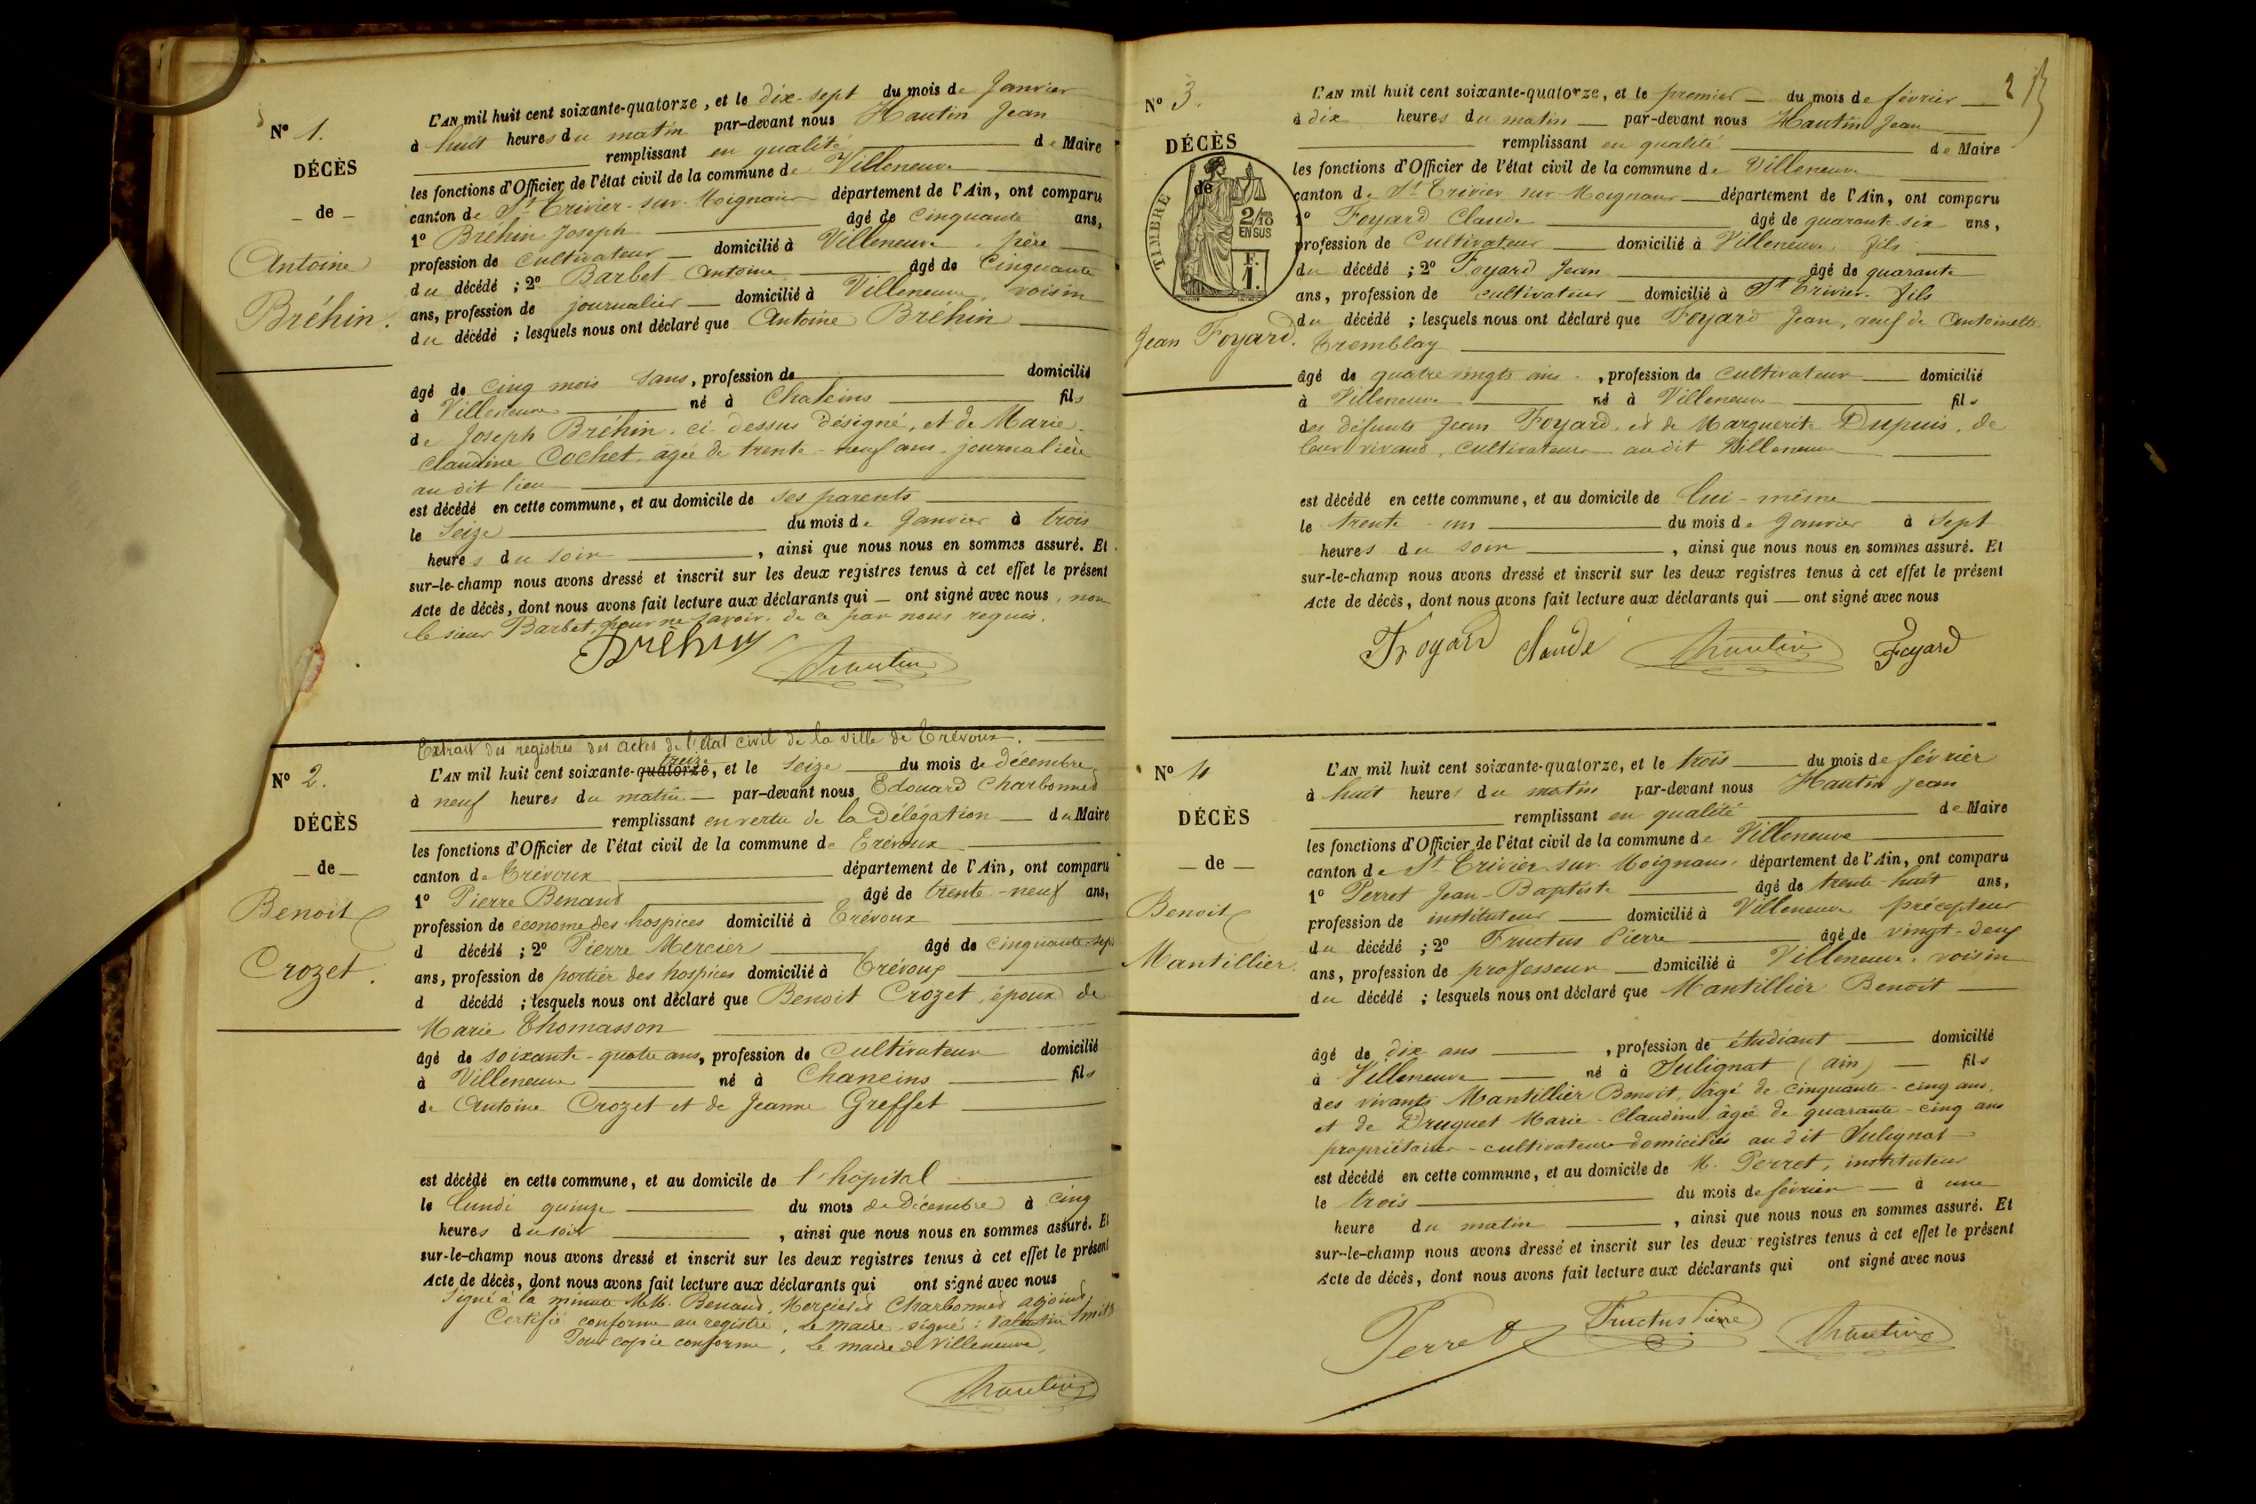 N° 1.
DÉCÈS
— de —
Antoine
Bréhin.
L'AN mil huit cent soixante-quatorze, et le dix-sept du mois de Janvier
à huit heures du matin par-devant nous Hautin Jean
remplissant en qualité de Maire
les fonctions d'Officier de l'état civil de la commune de Villeneuve
canton de St Trivier-sur-Moignans département de l'Ain, ont comparu
1° Bréhin Joseph âgé de Cinquante ans,
profession de Cultivateur domicilié à Villeneuve, père
du décédé ; 2° Barbet Antoine âgé de Cinquante
ans, profession de journalier domicilié à Villeneuve, voisin
du décédé ; lesquels nous ont déclaré que Antoine Bréhin
âgé de cinq mois sans, profession de domicilié
à Villeneuve né à Chaleins fils
de Joseph Bréhin, ci-dessus désigné, et de Marie-
Claudine Cochet, âgée de trente-neuf ans, journalière
au dit lieu
est décédé en cette commune, et au domicile de ses parents
le Seize du mois de Janvier à trois
heures du soir, ainsi que nous nous en sommes assuré. Et
sur-le-champ nous avons dressé et inscrit sur les deux registres tenus à cet effet le présent
Acte de décès, dont nous avons fait lecture aux déclarants qui — ont signé avec nous, non
le sieur Barbet, pour ne savoir, de ce par nous requis.
Bréhin Hautin
N° 2.
DÉCÈS
— de —
Benoit
Crozet.
Extrait des registres des actes de l'état civil de la ville de Trévoux.
treize
L'AN mil huit cent soixante-quatorze, et le Seize du mois de décembre
à neuf heures du matin — par-devant nous Edouard Charbonned
remplissant en vertu de la Délégation — du Maire
les fonctions d'Officier de l'état civil de la commune de Trévoux
canton de Trévoux département de l'Ain, ont comparu
1° Pierre Benand âgé de trente-neuf ans,
profession de économe des hospices domicilié à Trévoux
d décédé ; 2° Pierre Mercier âgé de cinquante-sept
ans, profession de portier des hospices domicilié à Trévoux
d décédé ; lesquels nous ont déclaré que Benoit Crozet, époux de
Marie Thomasson
âgé de soixante-quatre ans, profession de Cultivateur domicilié
à Villeneuve né à Chaneins fils
de Antoine Crozet et de Jeanne Greffet
est décédé en cette commune, et au domicile de l'hôpital
le lundi quinze du mois de Décembre à cinq
heures du soir, ainsi que nous nous en sommes assuré. Et
sur-le-champ nous avons dressé et inscrit sur les deux registres tenus à cet effet le présent
Acte de décès, dont nous avons fait lecture aux déclarants qui ont signé avec nous
Signé à la minute MM. Benand, Mercier et Charbonned adjoint
Certifié conforme au registre, Le Maire signé :
Pour copie conforme, Le Maire de Villeneuve,
Hautin
2
N° 3.
DÉCÈS
de
TIMBRE
2/10
EN SUS
F.
1.
Jean Foyard.
L'AN mil huit cent soixante-quatorze, et le premier — du mois de février
à dix heures du matin — par-devant nous Hautin Jean
remplissant en qualité de Maire
les fonctions d'Officier de l'état civil de la commune de Villeneuve
canton de St Trivier sur Moignans département de l'Ain, ont comparu
1° Foyard Claude âgé de quarante six ans,
profession de Cultivateur domicilié à Villeneuve fils
du décédé ; 2° Foyard Jean âgé de quarante
ans, profession de cultivateur domicilié à St Trivier fils
du décédé ; lesquels nous ont déclaré que Foyard Jean, veuf de Antoinette
Tremblay
âgé de quatre vingts ans, profession de Cultivateur domicilié
à Villeneuve né à Villeneuve fils
des défunts Jean Foyard, et de Marguerite Dupuis, de
leur vivant, Cultivateurs au dit Villeneuve
est décédé en cette commune, et au domicile de lui-même
le trente-un du mois de Janvier à Sept
heures du soir, ainsi que nous nous en sommes assuré. Et
sur-le-champ nous avons dressé et inscrit sur les deux registres tenus à cet effet le présent
Acte de décès, dont nous avons fait lecture aux déclarants qui — ont signé avec nous
Foyard Claude Hautin Foyard
N° 4
DÉCÈS
— de —
Benoit
Mantillier.
L'AN mil huit cent soixante-quatorze, et le trois du mois de février
à huit heures du matin par-devant nous Hautin Jean
remplissant en qualité de Maire
les fonctions d'Officier de l'état civil de la commune de Villeneuve
canton de St Trivier-sur-Moignans département de l'Ain, ont comparu
1° Perret Jean-Baptiste âgé de trente-huit ans,
profession de instituteur domicilié à Villeneuve précepteur
du décédé ; 2° Fructus Pierre âgé de vingt-deux
ans, profession de professeur domicilié à Villeneuve, voisin
du décédé ; lesquels nous ont déclaré que Mantillier Benoit
âgé de dix ans, profession de étudiant domicilié
à Villeneuve né à Sulignat (ain) fils
des vivants Mantillier Benoit, âgé de cinquante-cinq ans,
et de Druguet Marie-Claudine âgée de quarante-cinq ans
propriétaires-cultivateurs domiciliés au dit Sulignat
est décédé en cette commune, et au domicile de M. Perret, instituteur
le trois du mois de février — à une
heure du matin, ainsi que nous nous en sommes assuré. Et
sur-le-champ nous avons dressé et inscrit sur les deux registres tenus à cet effet le présent
Acte de décès, dont nous avons fait lecture aux déclarants qui ont signé avec nous
Perret Fructus Pierre Hautin